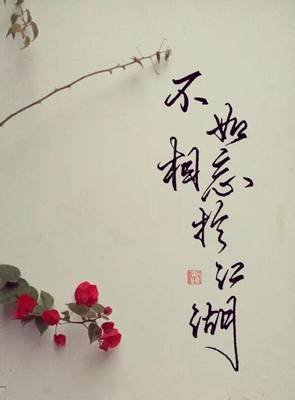 不如
相忘於江湖